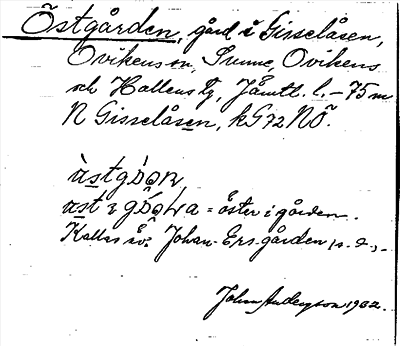 Östgården, gård i Gisselåsen,
Ovikens sn, Sunne, Ovikens
och Hallens tg, Jämtl. l. – 75 m
N Gisselåsen, kG72NÖ.
= öster i gården.
Kallas äv. Johan-Ers-gården
Johan Anderzson 1932.